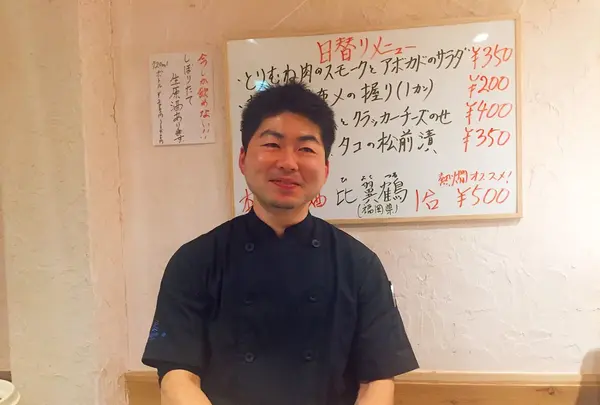 日替りメニュー
・とりむね肉のスモークとアボカドのサラダ ¥350
メの握り(1カン) ¥200
とクラッカーチーズのせ ¥400
タコの松前漬 ¥350
ひ よく つる
比翼鶴 1合 ¥500
(福岡県)
熱燗オススメ!
今しか飲めない!!
しぼりたて
生原酒あります